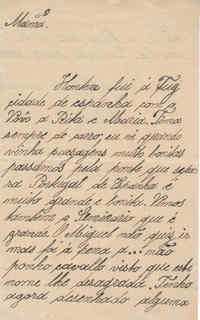 Mamã.
Hontem fui á Tuy
cidade de espanha com o
Vôvô a Bika e Maria. Fomos
sempre de carro, eu vi quando
vinha paisagens muito bonitas
passámos pela ponte que sepa
ra Portugal de Espanha é
muito grande e bonita. Vimos
tambem o Seminario que é
grande. O Miguel não quiz ir
mais foi á pena e... não
ponho cavallo visto que este
nome lhe desagrada. Tenho
agora desenhado alguma